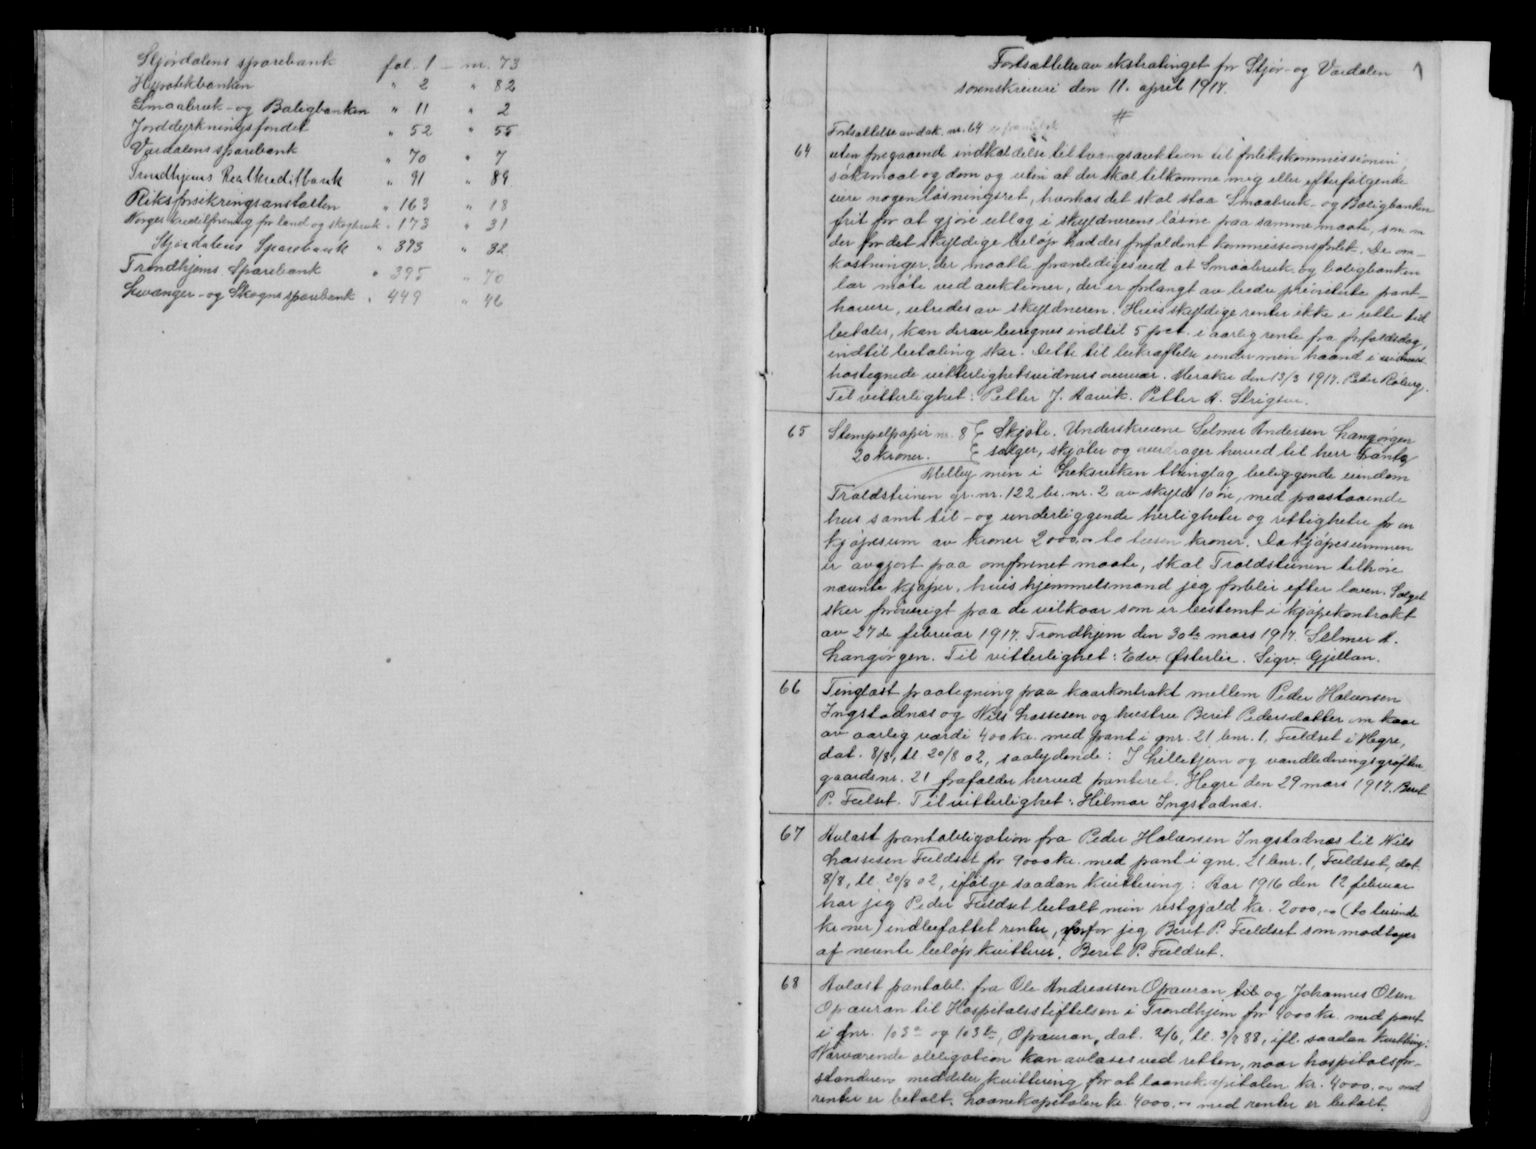 Stjørdalens sparebank fol. 1 – nr. 73
Hypotekbanken " 2 " 82
Smaabruk- og Boligbanken " 11 " 2
Jorddyrkningsfondet " 52 " 55
Værdalens sparebank " 70 " 7
Trondhjems Realkreditbank " 91 " 89
Riksforsikringsanstalten " 163 " 18
Norges kreditforening for land og skogbruk " 173 " 31
Stjørdalens Sparebank " 393 " 32
Trondhjems Sparebank " 395 " 70
Levanger- og Skogns sparebank " 449 " 46
Fortsættelse av ekstratinget for Stjør- og Værdalen 1
sorenskriveri den 11. april 1917.
#
Fortsættelse av dok. nr. 64
64 uten foregaaende indkaldelse til tvangsauktion til forlikskommissionen,
søksmaal og dom og uten at der skal tilkomme mig eller efterfølgende
eiere nogen løsningsret, hvorhos det skal staa Smaabruk- og Boligbanken
frit for at gjøre utlæg i skyldnerens løsøre paa samme maate, som om
der for det skyldige beløp haddes forfaldent kommissionsforlik. De om-
kostninger, der maatte foranlediges ved at Smaabruk- og boligbanken
lar møte ved auktioner, der er forlangt av bedre prioriterte pant-
havere, utredes av skyldneren. Hvis skyldige renter ikke i rette tid
betales, kan derav beregnes indtil 5 pct. i aarlig rente fra forfaldsdag,
indtil betaling sker. Dette til bekræftelse under min haand i
hostegnede vitterlighetsvidners overvær. Meraker den 13/3 1917. Peder Råberg.
Til vitterlighet: Petter J. Aavik. Petter A. Stigsen.
65 Stempelpapir nr. 8 Skjøte. Underskrevne Selmer Andersen Langørgen
20 kroner. sælger, skjøter og overdrager herved til herr
Melby min i Leksviken thinglag beliggende eiendom
Troldsteinen gr. nr. 122 br. nr. 2 av skyld 10 øre, med paastaaende
hus samt til- og underliggende herligheter og rettigheter for en
kjøpesum av kroner 2000,00 to tusen kroner. Da kjøpesummen
er avgjort paa omforenet maate, skal Troldsteinen tilhøre
nævnte kjøper, hvis hjemmelsmand jeg forblir efter loven. Salget
sker forøvrigt paa de vilkaar som er bestemt i kjøpekontrakt
av 27de februar 1917. Trondhjem den 30te mars 1917. Selmer A.
Langørgen. Til vitterlighet: Edv. Østerlie. Sigv. Gjellan.
66 Tinglæst paategning paa kaarkontrakt mellem Peder Halvorsen
Ingstadnæs og Nils Lassesen og hustru Berit Pedersdatter om kaar
av aarlig værdi 400 kr. med pant i gnr. 21 bnr. 1, Fuldset i Hegre,
dat. 8/8, tl. 20/8 02, saalydende: I Lilletjern og vandledningsgrøften
gaardsnr. 21 frafalder herved panteret. Hegre den 29 mars 1917. Berit
P. Fulset. Til vitterlighet: Hilmar Ingstadnæs.
67 Avlæst pantobligation fra Peder Halvorsen Ingstadnæs til Nils
Lassesen Fuldset for 9000 kr. med pant i gnr. 21 bnr. 1, Fuldset, dat.
8/8, tl. 20/8 02, ifølge saadan kvittering: Aar 1916 den 12 februar
har jeg Peder Fuldset betalt min restgjæld kr. 2000,00 (to tusinde
kroner) indbefattet renter, hvorfor jeg Berit P. Fuldset som modtager
af nevnte beløp kvitterer. Berit P. Fuldset.
68 Avlæst pantobl. fra Ole Andreassen Opauran til og Johannes Olsen
Opauran til Hospitalsstiftelsen i Trondhjem for 4000 kr. med pant
i gnr. 103a og 103b, Opauran, dat. 2/6, tl. 3/7 88, ifl. saadan kvittering:
Nærværende obligation kan avlæses ved retten, naar hospitalsfor-
standeren meddeler kvittering for at laanekapitalen kr. 4000,00 med
renter er betalt. Laanekapitalen kr. 4000,00 med renter er betalt.